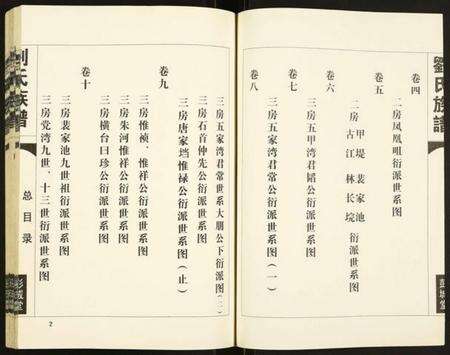 劉氏族譜
卷四
二房凤凰咀衍派世系图
卷五
二房 甲堤 裴家池 古江 林长垸 衍派世系图
卷六
三房五甲湾君韬公衍派世系图
卷八
三房五家湾君常公衍派世系图(一)
三房五家湾君常世系大朋公下衍派图(二)
三房石首仲先公衍派世系图
三房唐家垱惟禄公衍派世系图(止)
卷九
三房惟祯、惟祥公衍派世系图
三房朱河惟祥公衍派世系图
三房横台日珍公衍派世系图
卷十
三房裴家池九世祖衍派世系图
三房党湾九世、十三世衍派世系图
劉氏族譜
总目录
2